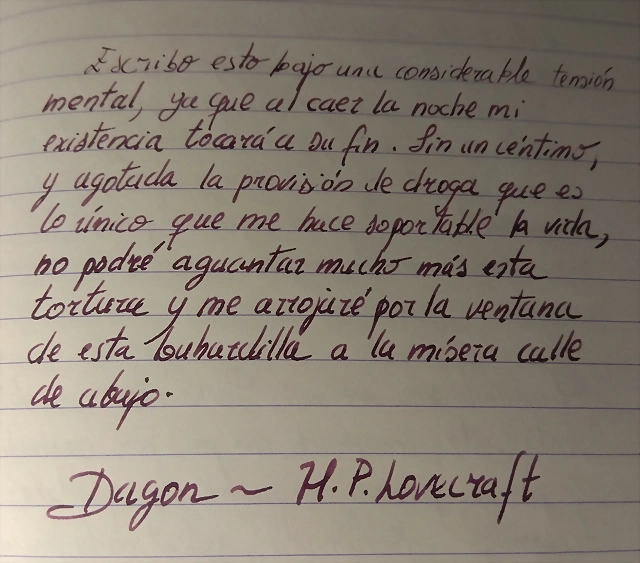 Escribo esto bajo una considerable tensión
mental, ya que al caer la noche mi
existencia tocará a su fin. Sin un céntimo,
y agotada la provisión de droga que es
lo único que me hace soportable la vida,
no podré aguantar mucho más esta
tortura y me arrojaré por la ventana
de esta buhardilla a la mísera calle
de abajo.
Dagon ~ H.P. Lovecraft